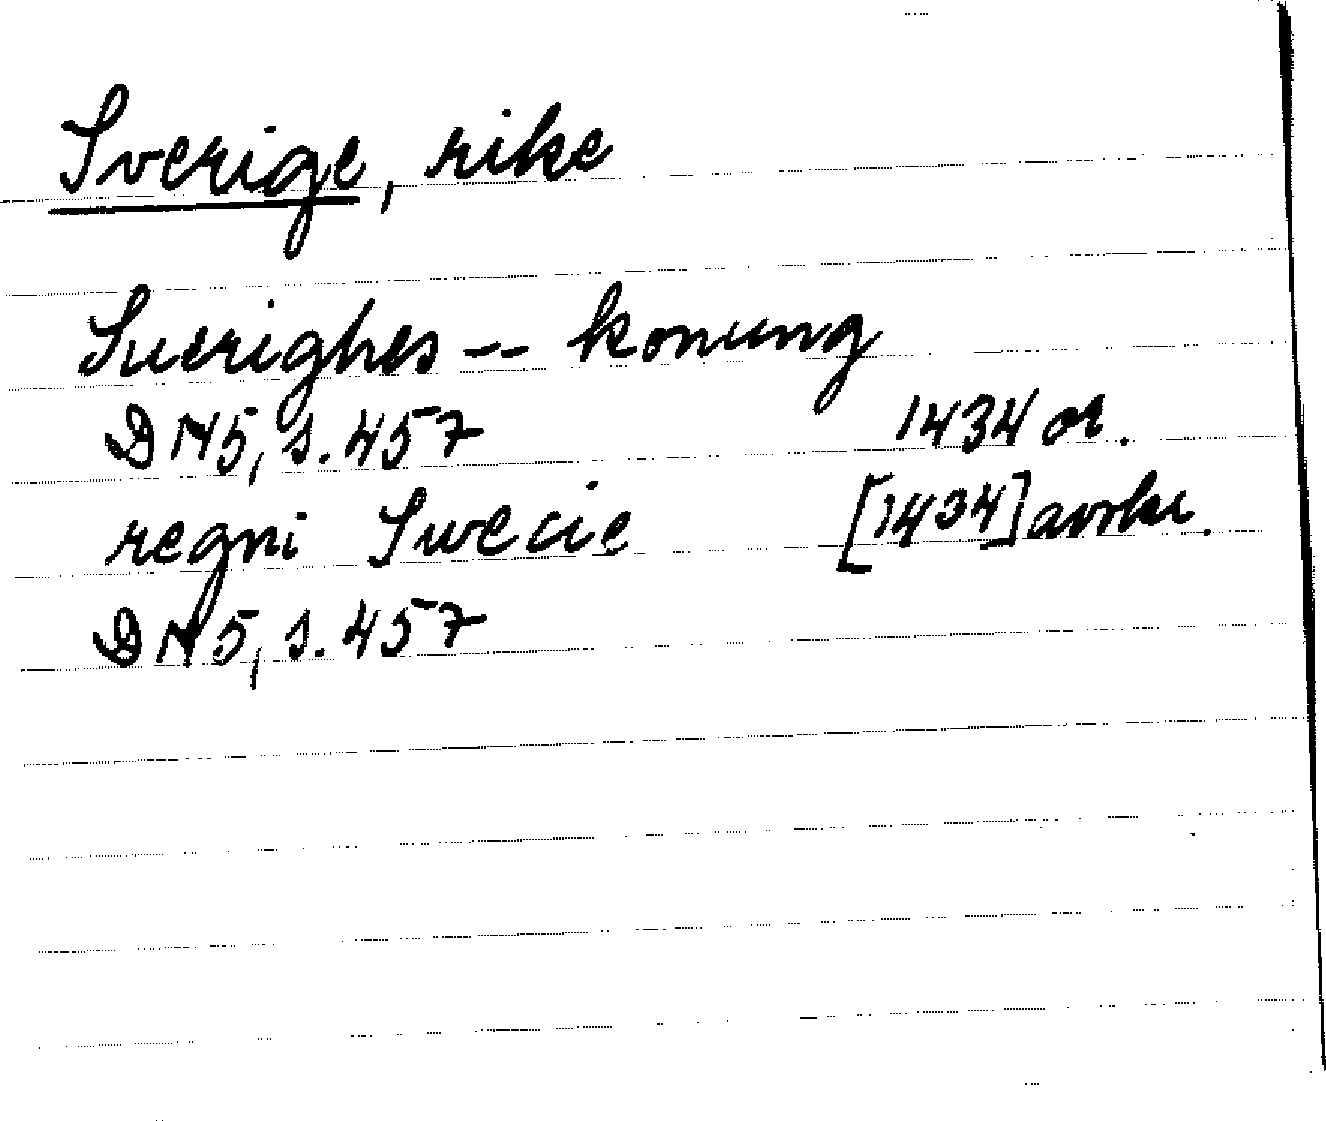 Sverige, rike
Suerighes -- konung
DN5, s. 457 1434 or.
regni Swecie [1434] avskr.
DN5, s. 457